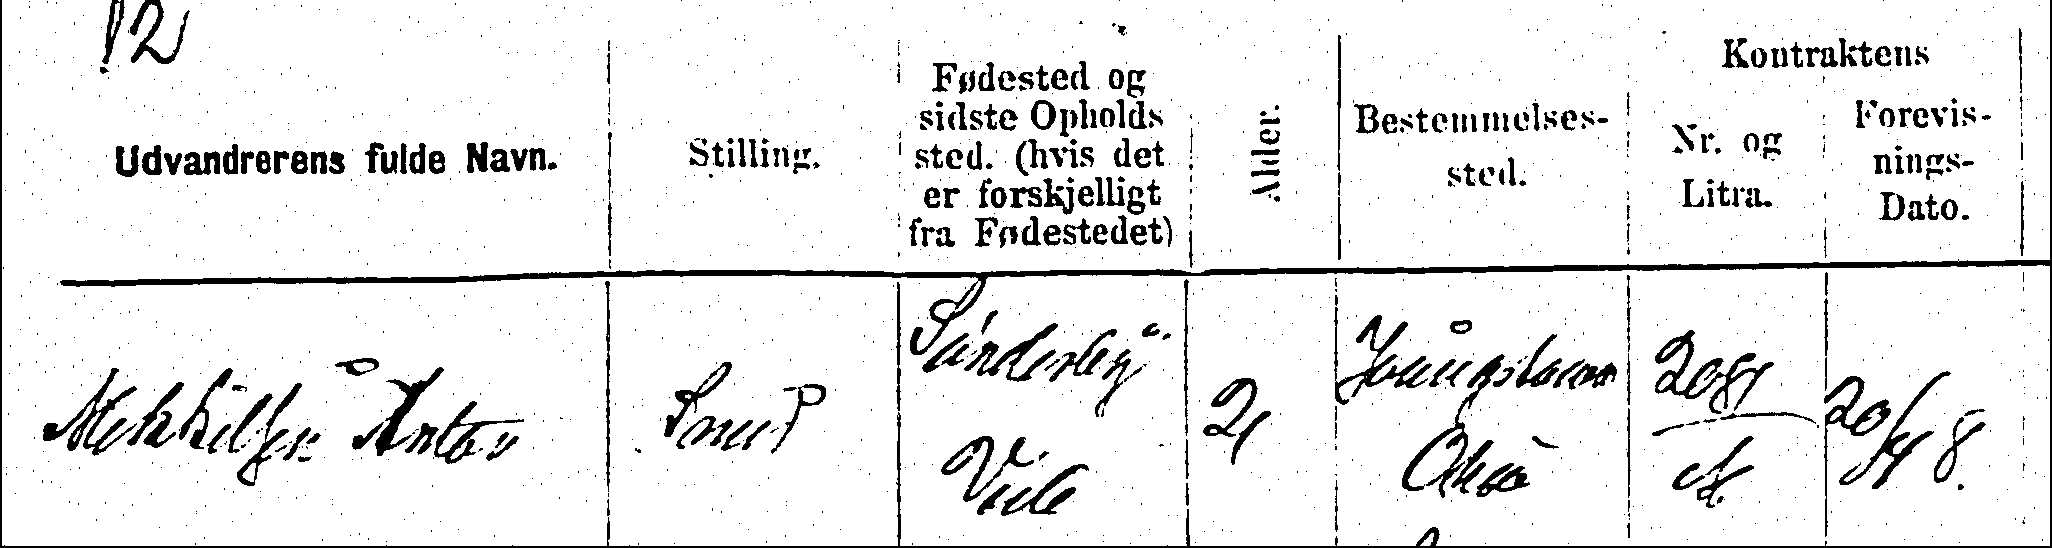 12
Udvandrerens fulde Navn.
Stilling.
Fødested og
sidste Opholds
sted. (hvis det
er forskjelligt
fra Fødestedet)
Alder.
Bestemmelses-
sted.
Kontraktens
Nr. og
Litra.
Forevis-
nings-
Dato.
Anton
Smed
Sönderby
21
Youngstown
Ohio
A